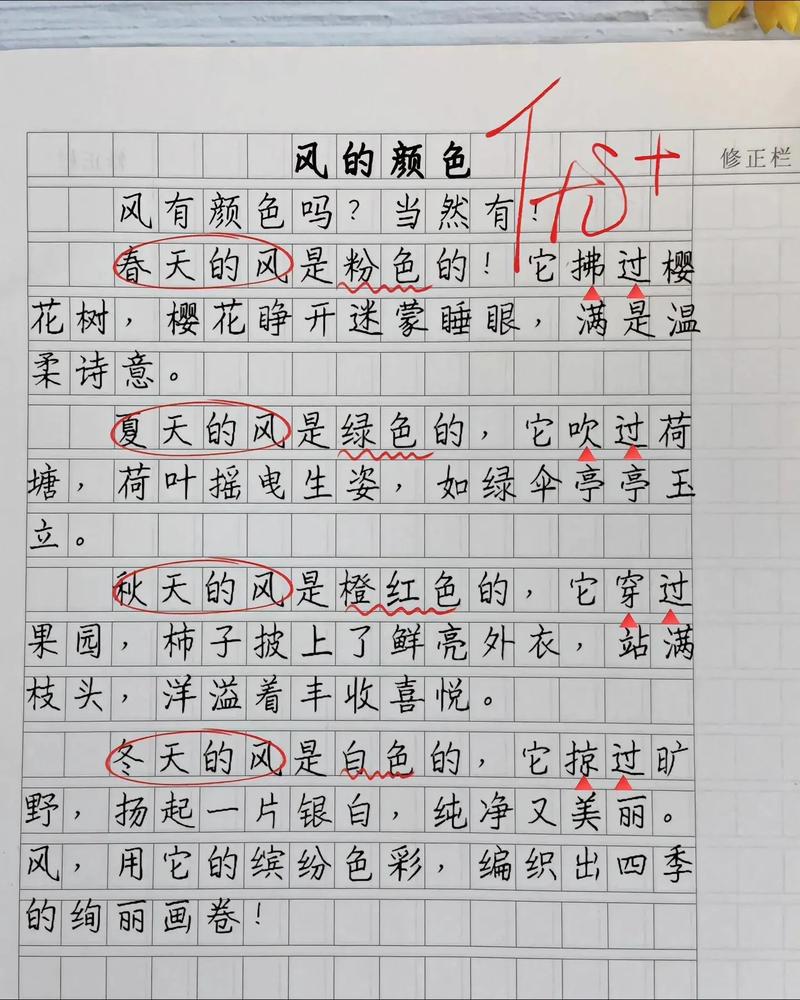 风的颜色
优+
修正栏
风有颜色吗？当然有！
春天的风是粉色的！它拂过樱
花树，樱花睁开迷蒙睡眼，满是温
柔诗意。
夏天的风是绿色的，它吹过荷
塘，荷叶摇曳生姿，如绿伞亭亭玉
立。
秋天的风是橙红色的，它穿过
果园，柿子披上了鲜亮外衣，站满
枝头，洋溢着丰收喜悦。
冬天的风是白色的，它掠过旷
野，扬起一片银白，纯净又美丽。
风，用它的缤纷色彩，编织出四季
的绚丽画卷！